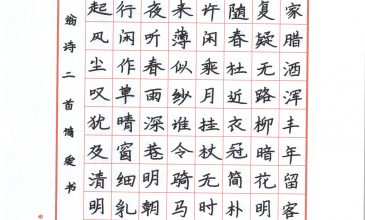 家腊酒浑丰年留客
复疑无路柳暗花明
随春社近衣冠简朴
许闲乘月拄杖无时
来薄似纱谁令骑马
夜听春雨深巷明朝
行闲作草晴窗细乳
起风尘叹犹及清明
诗二首 爱书